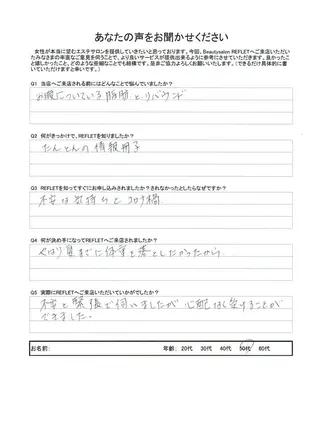 あなたの声をお聞かせください
女性が本当に望むエステサロンを提供していきたいと思っております。今回、Beautysalon REFLETへご来店いただい
たみなさまの率直なご意見を伺うことで、より良いサービスが提供出来るように参考にさせていただきます。良かったこ
と嬉しかったこと、どのような些細なことでも結構です。是非ご協力よろしくお願いいたします。(できるだけ具体的に書
いていただけますと幸いです。)
Q1 当店へご来店される前にはどんなことで悩んでいましたか?
お腹についている脂肪とリバウンド
Q2 何がきっかけで、REFLETを知りましたか?
たんとんの情報冊子
Q3 REFLETを知ってすぐにお申し込みされましたか?されなかったとしたらなぜですか?
不安な気持ちとコロナ禍
Q4 何が決め手になってREFLETへご来店されましたか?
やはり夏までに体重を落としたかったから
Q5 実際にREFLETへご来店いただいていかがでしたか?
不安と緊張で伺いましたが心配なく受けることが
できました。
お名前: 年齢: 20代 30代 40代 50代 60代